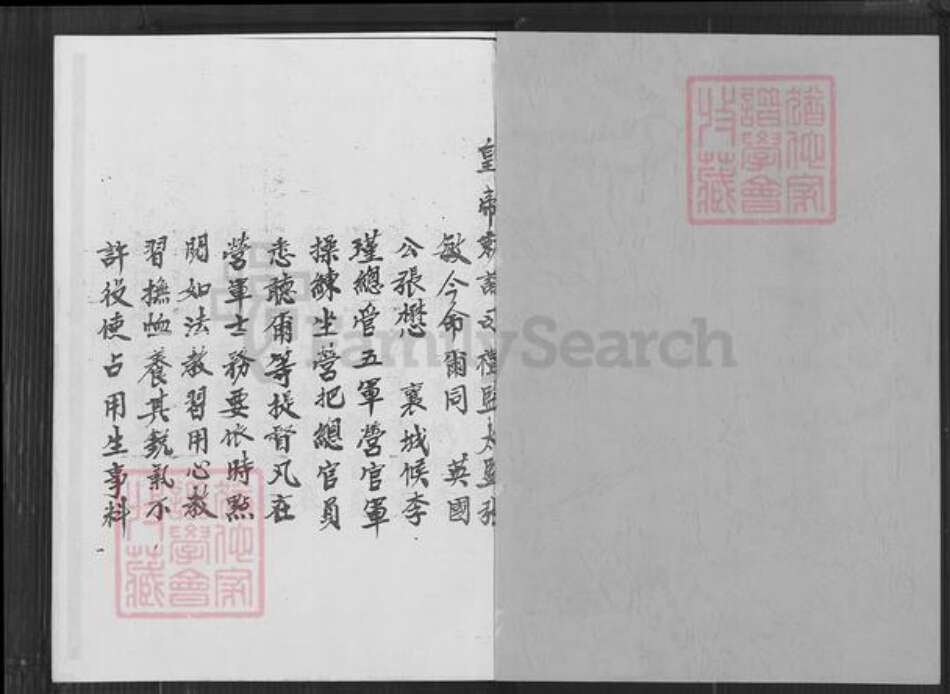 皇帝敕諭司禮監太監張
敏今命爾同　英國
公張懋　襄城候李
瑾總管五軍營官軍
操練坐營把總官員
悉聽爾等提督凡在
營軍士務要依時點
閱如法教習用心教
習撫恤養其銳氣不
許役使占用生事科
譜學會
特藏
譜學會
特藏
FamilySearch